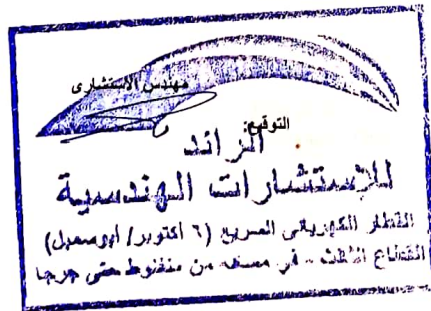 مهندس الاستشارى
التوقيع:
الرائد
للإستشارات الهندسية
القطار الكهربائى السريع (٦ اكتوبر/ ابوسمبل)
القطاع الثالث - فى مسافه من منفلوط حتى جرجا